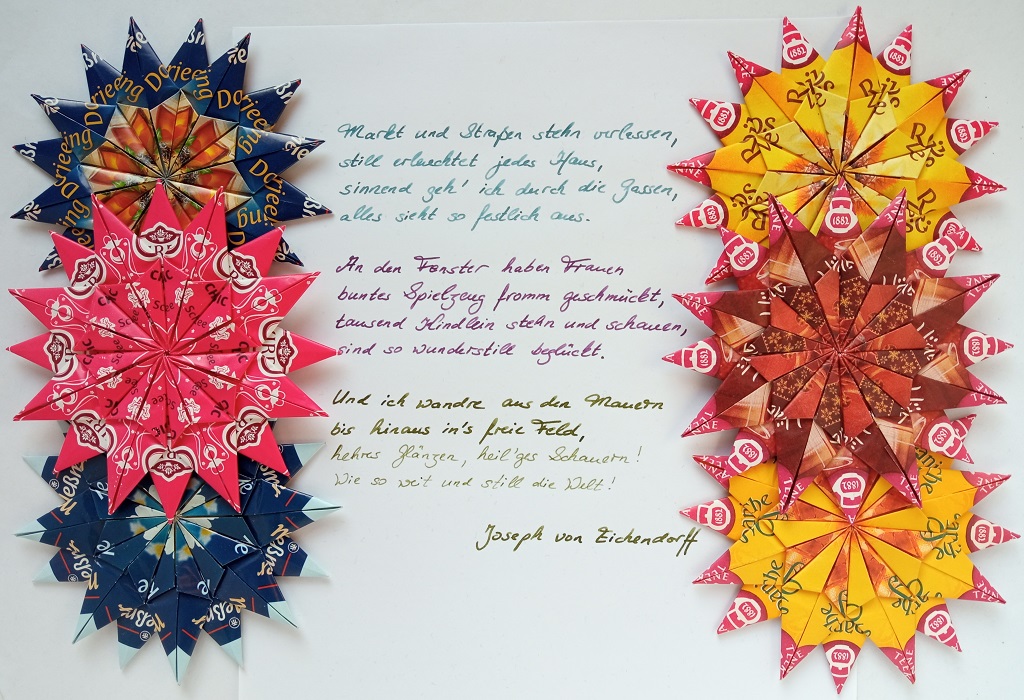 Markt und Straßen stehn verlassen,
still erleuchtet jedes Haus,
sinnend geh' ich durch die Gassen,
alles sieht so festlich aus.
An den Fenster haben Frauen
buntes Spielzeug fromm geschmückt,
tausend Kindlein stehn und schauen,
sind so wunderstill beglückt.
Und ich wandre aus den Mauern
bis hinaus in's freie Feld,
hehres Glänzen, heil'ges Schauern!
Wie so weit und still die Welt!
Joseph von Eichendorff